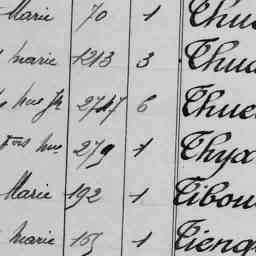 Marie 70 1 Thu
marie 1213 3 Thua
6 Thue
279 1 Thyx
Marie 192 1 Tibou
marie 1 Tieng